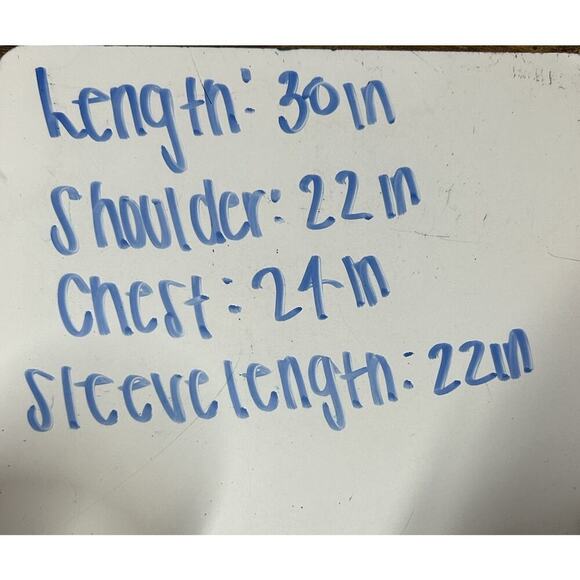 Length: 30in
Shoulder: 22in
Chest: 24in
Sleeve length: 22in